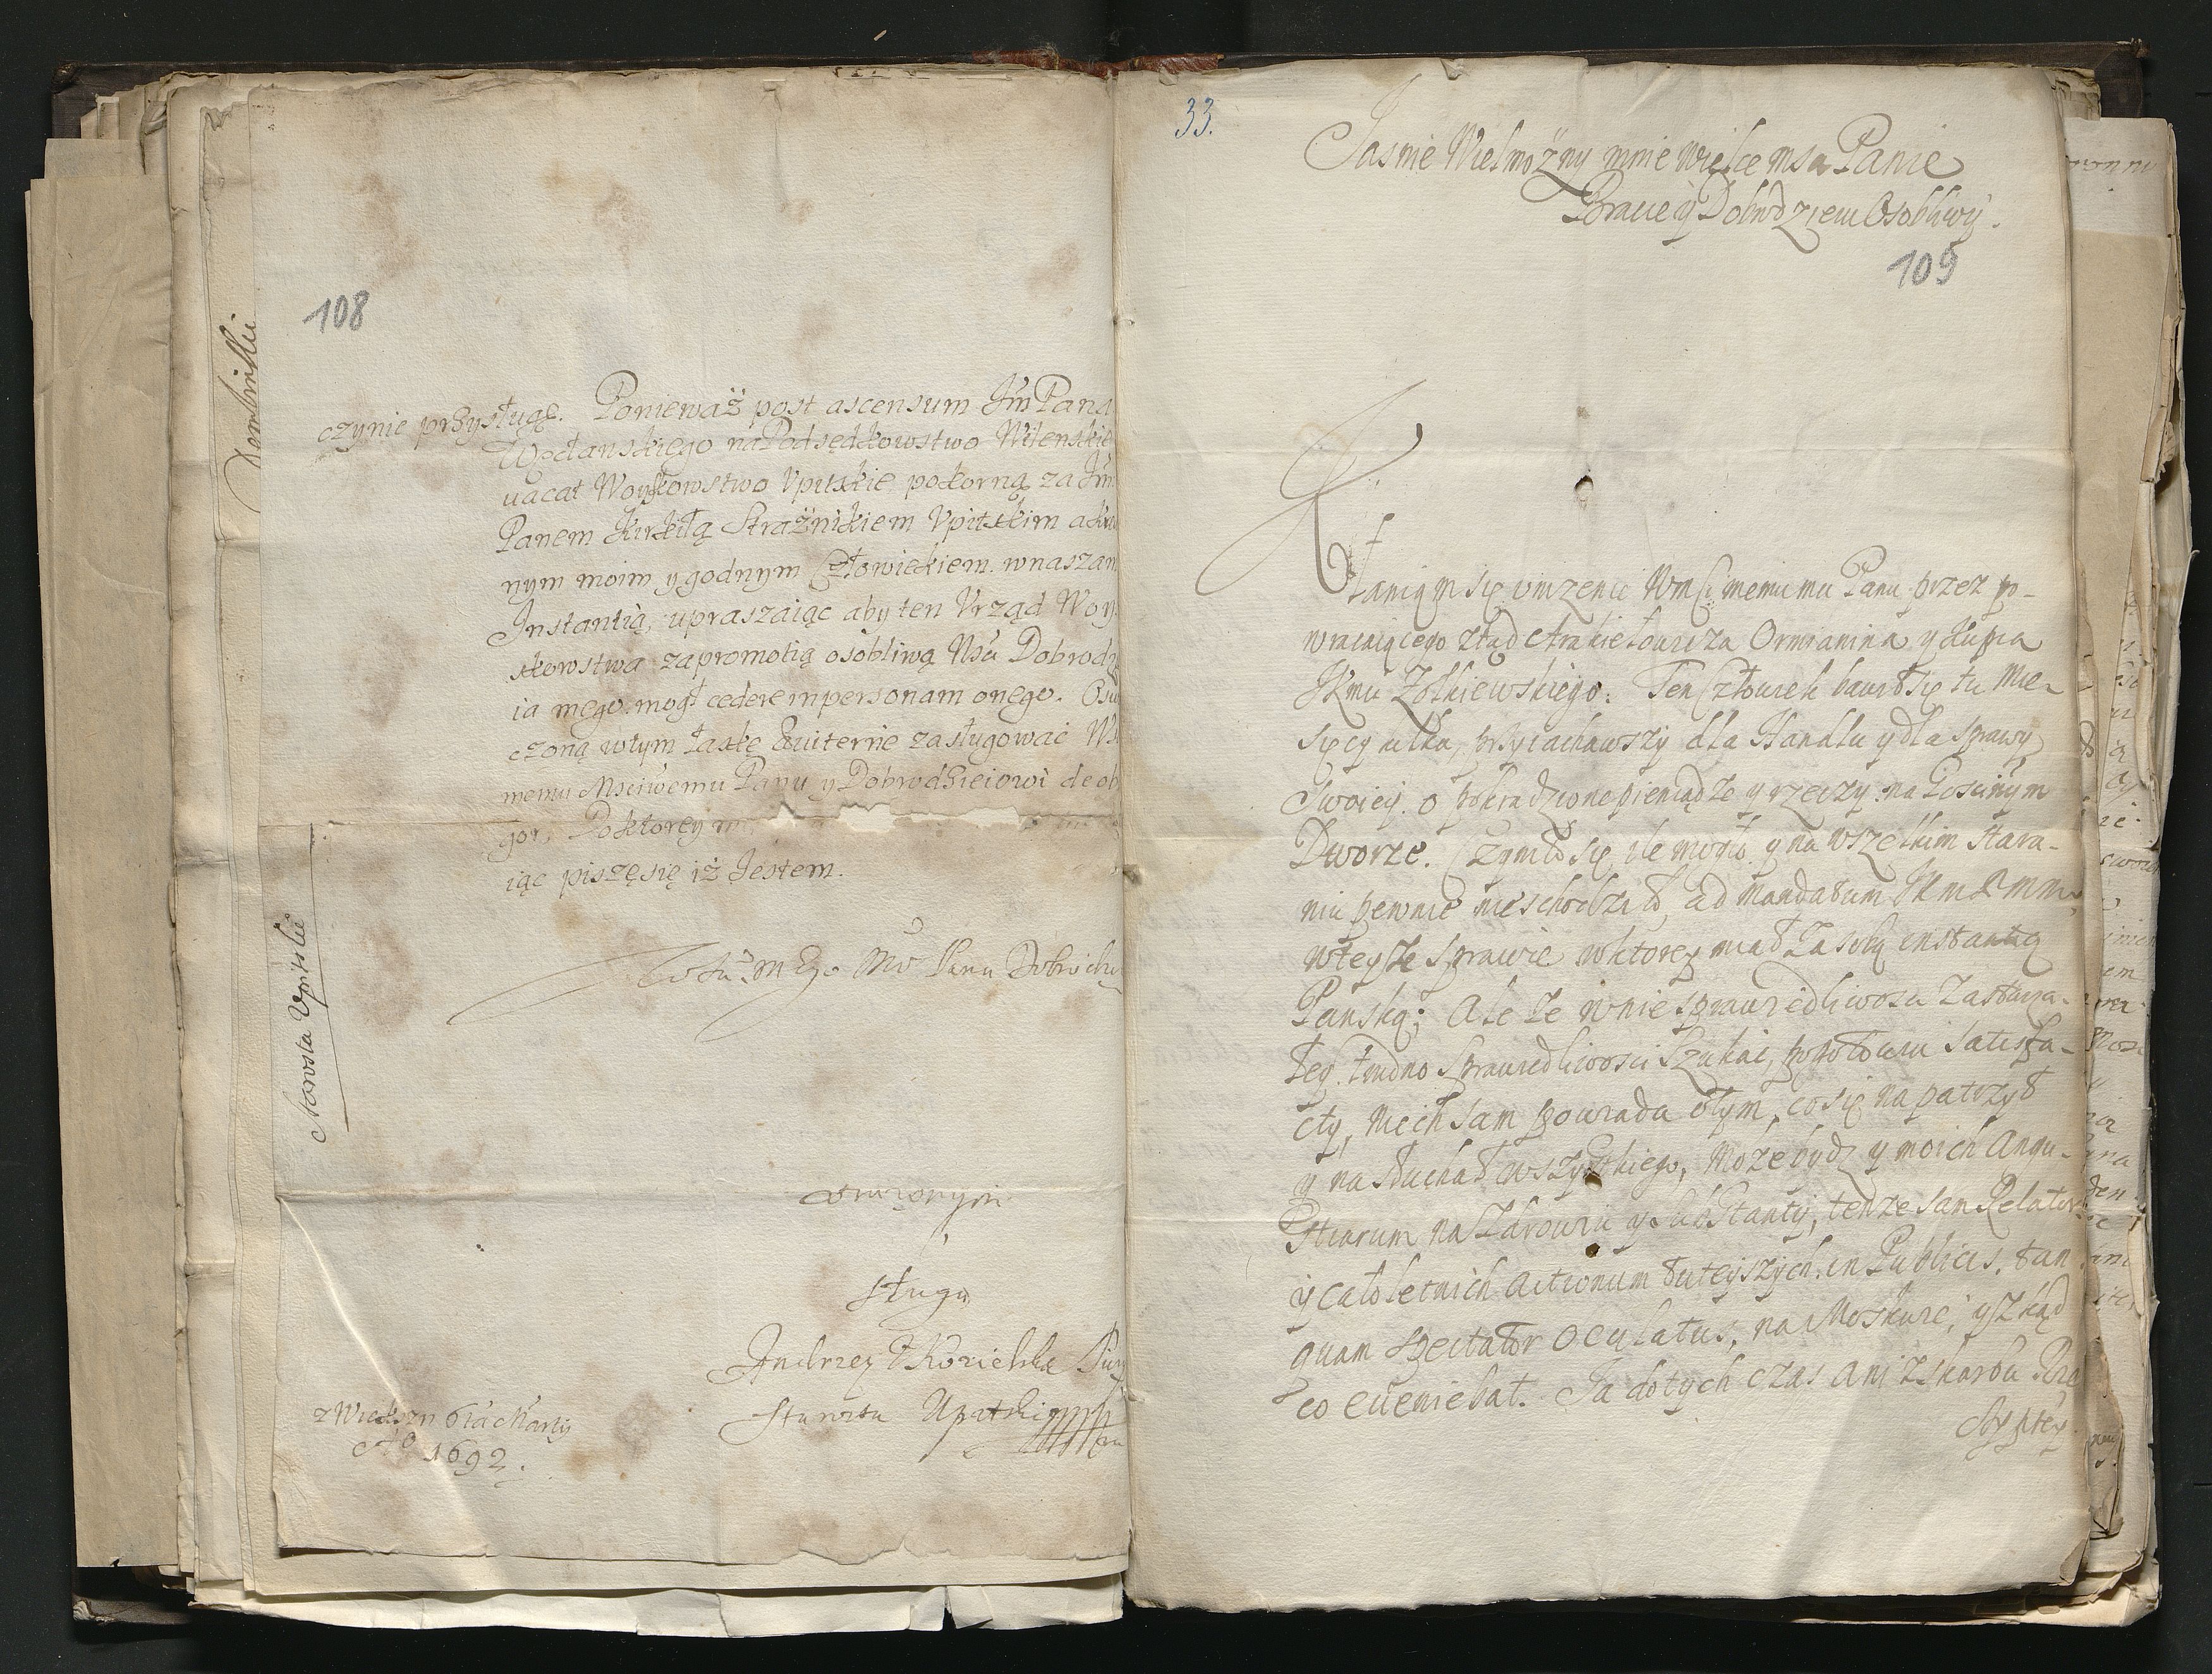 108
Dombrski
czynie przysługę. Ponieważ post ascensum Jm Pana
Wolanskiego na Podsędkowstwo Wilenskie
vacat Woyskowstwo Vpitskie pokorną za Jm
Panem Kirkiłą Strażnikiem Vpitskim
nym moim y godnym Człowiekiem wnaszam
Instantią, upraszaiąc aby ten Vrząd Woy
skowstwa za promotią osobliwą Dobrodz
ia mego mogł cedere in personam onego.
czoną w tym łaskę zasługować
memu Msciwemu Panu y Dobrodzieiowi de ob
gor, Do ktorey
iąc piszę się iż Jestem.
Starosta Vpitski
Mo Panu Dobrodz
sługa
Andrzey
starosta Upitski
1692.
33.
Jasnie Wielmożny mnie wielce msci Panie
Bracie y Dobrodzieiu Osobliwy.
109
Kłaniąm się vnizenie Wmsci memu mu Panu przez po-
wracaiącego ztąd Ormianina y Kupca
Jkmci Zołkiewskiego. Ten Człowiek bawił się tu Mie-
sięcy kilka, przyiachawszy dla Handlu y dla sprawy
Swoiey o pokradzione pieniądze y rzeczy na Goscinnym
Dworze. Czyniło się ile mogło y na wszelkim stara-
niu pewnie nie schodziło, ad mandatum
w teyże sprawie w ktorey miał za sobą instantią
Panską; Ale że w niesprawiedliwosci zastarza-
łey trudno sprawiedliwosci szukać, pogotowiu satisfa-
ctÿ, niech sam powiada o tym, co się napatrzył
y nasłuchał wszystkiego, Może bydz y moich Angu-
stiarum na zdrowiu y substantÿ, tenże sam Relator
y całoletnich actionum tuteyszych in Publicis, tan
quam spectator oculatus, na Moskwie, y zkąd
co eveniebat. Ja dotych czas ani z skarbu